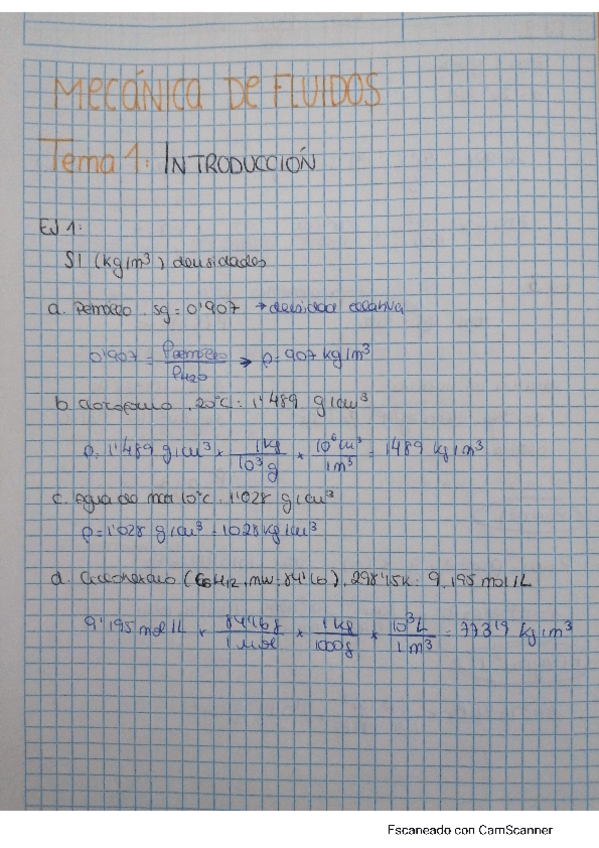 MECÁNICA DE FLUIDOS
Tema 1: INTRODUCCIÓN
EJ 1:
SI (kg/m³) densidades
a. Petroleo. sg = 0'907 → densidad relativa
0'907 = ρpetroleo / ρH2O → ρ = 907 kg/m³
b. Cloroformo, 20°C: 1'489 g/cm³
ρ = 1'489 g/cm³ × 1 kg / 10³ g × 10⁶ cm³ / 1 m³ = 1489 kg/m³
c. Agua de mar 10°C. 1'028 g/cm³
ρ = 1'028 g/cm³ = 1028 kg/cm³
d. Ciclohexano (C6H12, mw: 84'16), 298'15K: 9,195 mol/L
9'195 mol/L × 84'16 g / 1 mol × 1 kg / 1000 g × 10³ L / 1 m³ = 773'9 kg/m³
Escaneado con CamScanner